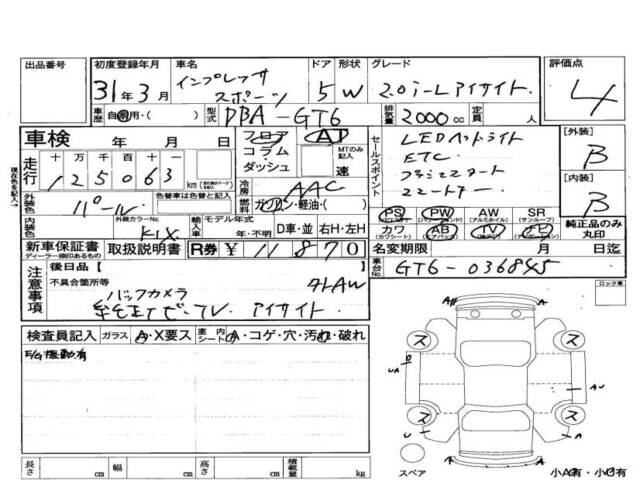 出品番号
初度登録年月
31年3月
車名
インプレッサ
スポーツ
ドア
5
形状
W
グレード
2.0i-Lアイサイト
評価点
4
車歴
自家用・( )
型式
DBA-GT6
排気量
2000cc
定員
人
車検
年 月 日
フロア
コラム
ダッシュ
AT
MTのみ記入
速
セールスポイント
LEDヘットライト
ETC
プッシュスタート
[外装]
B
[内装]
B
走行
十万千百十一
125063
km
冷房
AAC
燃料
ガソリン・軽油・( )
外装色
パール
色替車は色替色を記入
外装カラーNo.
K1X
内装色
輸入車
モデル年式
年・不明
D車・並
右H・左H
PS
PW
AW
SR
(パワーウィンドウ)
(アルミホイル)
(サンルーフ)
カワ
AB
TV
ナビ
(カワシート)
(エアバック)
純正品のみ
丸印
新車保証書
ディーラー捺印あるもの
取扱説明書
R券
¥11870
名変期限
月 日迄
車台No.
GT6-036845
現在色を記入→
注意事項
後日品【
不具合箇所等
バックカメラ
アイサイト
ロック車
検査員記入
ガラス
A・X要ス
室内
シート
A・コゲ・穴・汚れ・破れ
E/G振動有
ス
ス
ス
ス
UA
U
AU
A
A
スペア
小A有・小U有
長さ
cm
幅
cm
高さ
cm
積載量
kg